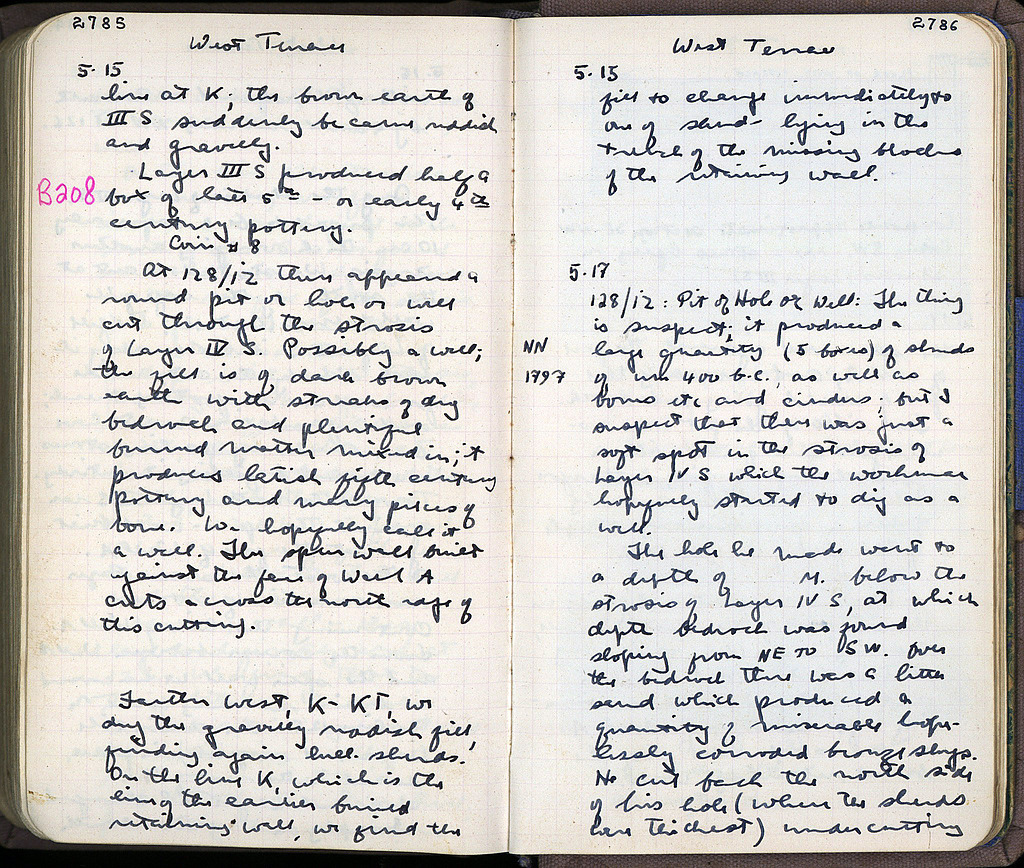 2785
West Terrace
5.15
line at K; the brown earth of
III S suddenly became reddish
and gravelly.
Layer III S produced half a
B208
box of late 5th - or early 4th
century pottery.
Coin #8
At 128/12 there appeared a
round pit or hole or well
cut through the strosis
of Layer IV S. Possibly a well;
the fill is of dark brown
earth with streaks of dug
bedrock and plentiful
burned matter mixed in; it
produces latish fifth century
pottery and many pieces of
bone. We hopefully call it
a well. The spur wall built
against the face of Wall A
cuts across the north edge of
this cutting.
Farther west, K-KΓ, we
dug the gravelly reddish fill,
finding again hell. sherds.
On the line K, which is the
line of the earlier buried
retaining wall, we find the
2786
West Terrace
5.15
fill to change immediately to
one of sherds lying in the
trench of the missing blocks
of the retaining wall.
5.17
128/12: Pit or Hole or Well: The thing
is suspect; it produced a
NN
large quantity (5 boxes) of sherds
1797
of 400 b.c., as well as
bones etc and cinders; but I
suspect that there was just a
soft spot in the strosis of
Layer IV S which the workman
hopefully started to dig as a
well.
The hole he made went to
a depth of M. below the
strosis of Layer IV S, at which
depth bedrock was found
sloping from NE to SW. Over
the bedrock there was a little
sand which produced a
quantity of miserable hope-
lessly corroded bronze slugs.
He cut back the north side
of his hole (where the sherds
were thickest) undercutting